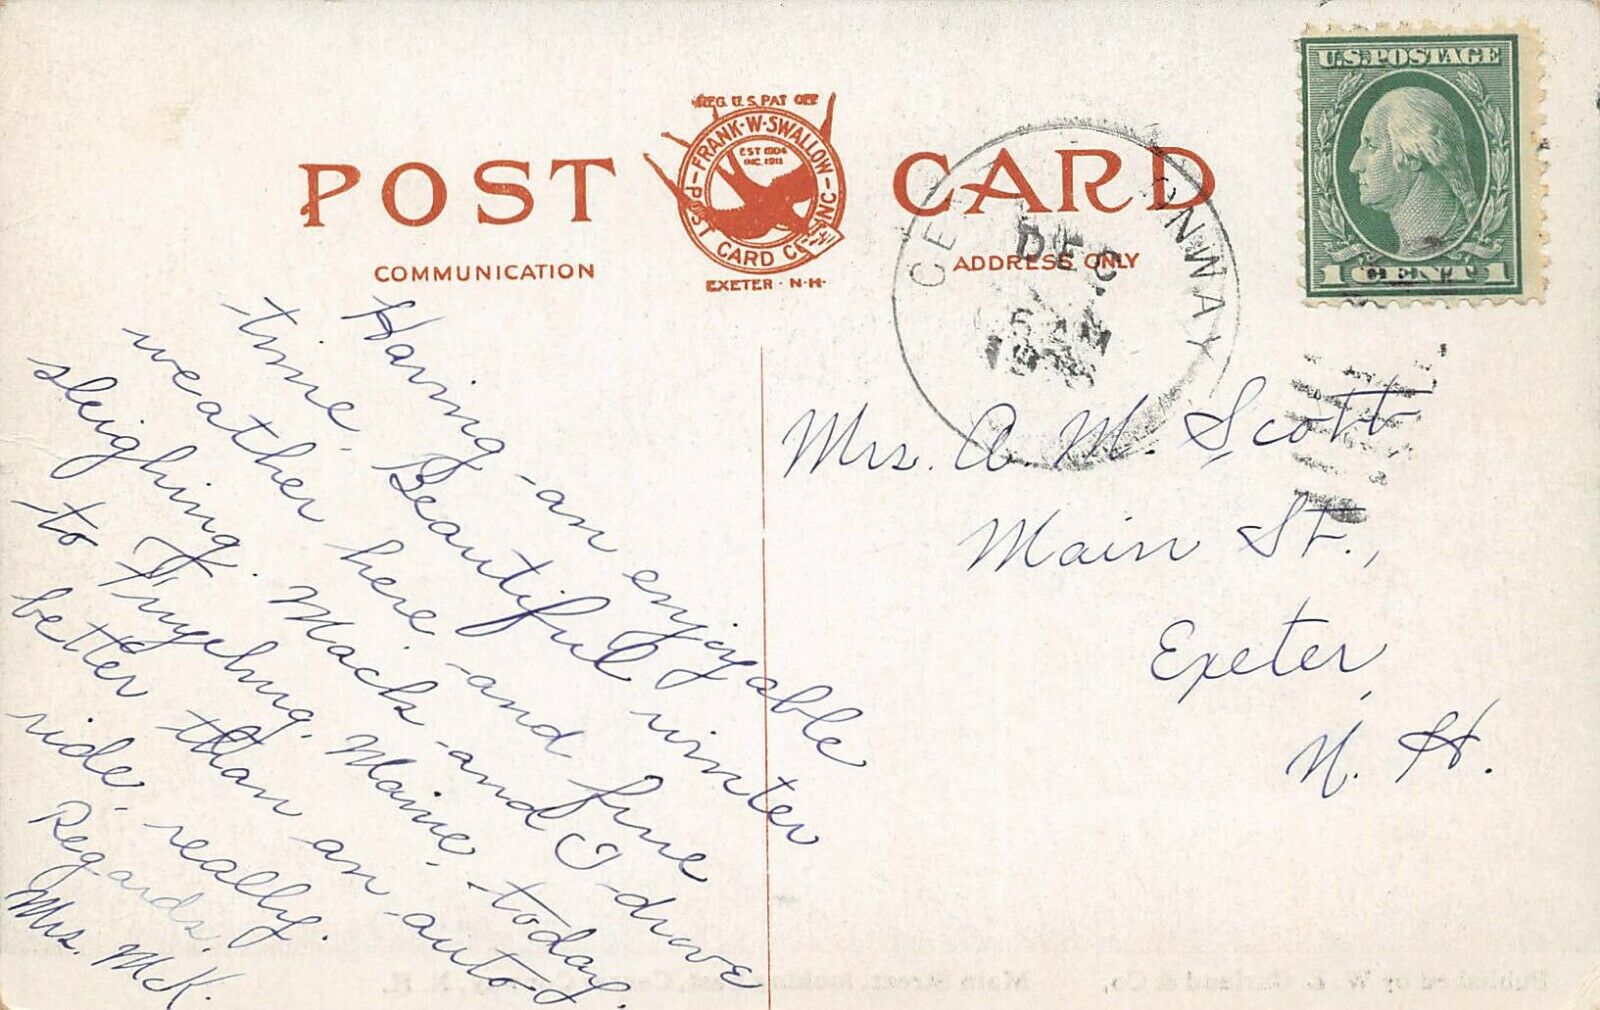 POST CARD
REG. U.S. PAT. OFF.
FRANK·W·SWALLOW
POST CARD CO. INC.
EST 1904
INC. 1911
EXETER · N·H·
COMMUNICATION
ADDRESS ONLY
U.S. POSTAGE
1 CENT 1
CE ONWAY
DEC
5 AM
19
Having an enjoyable
time. Beautiful winter
weather here and fine
sleighing. Mack and I drove
to Fryebug, Maine, today,
better than an auto
ride, really.
Regards.
Mrs. McK.
Mrs. A. M. Scott
Main St.,
Exeter,
N. H.
Published by W. E. &  Co., Main Street, looking East, Center Conway, N. H.